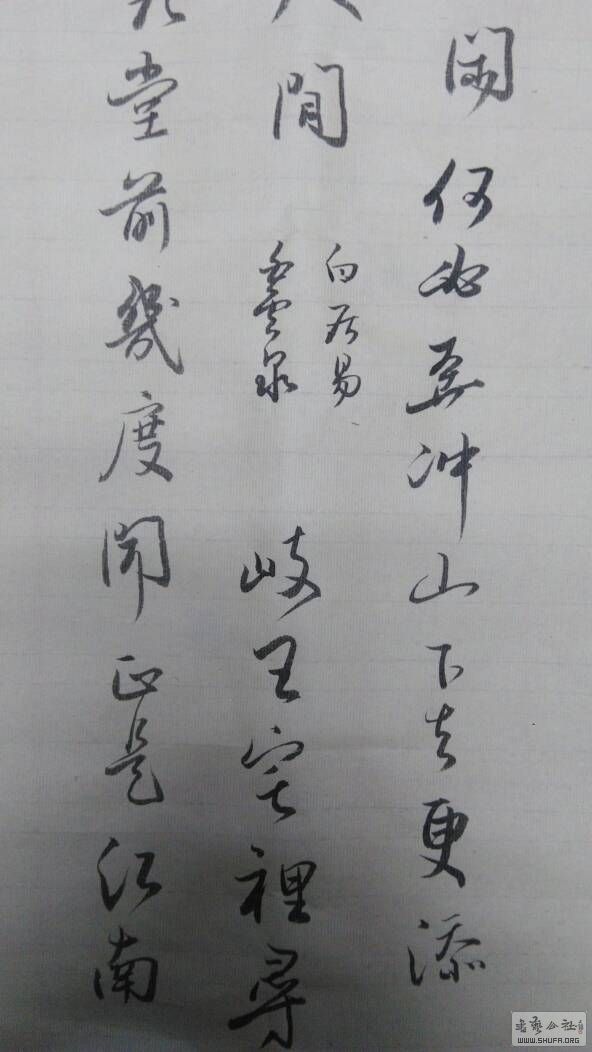 閑何必奔冲山下去更添
人間
白居易
白雲泉
岐王宅裡尋
九堂前幾度聞正是江南
書藝公社
WWW.SHUFA.ORG